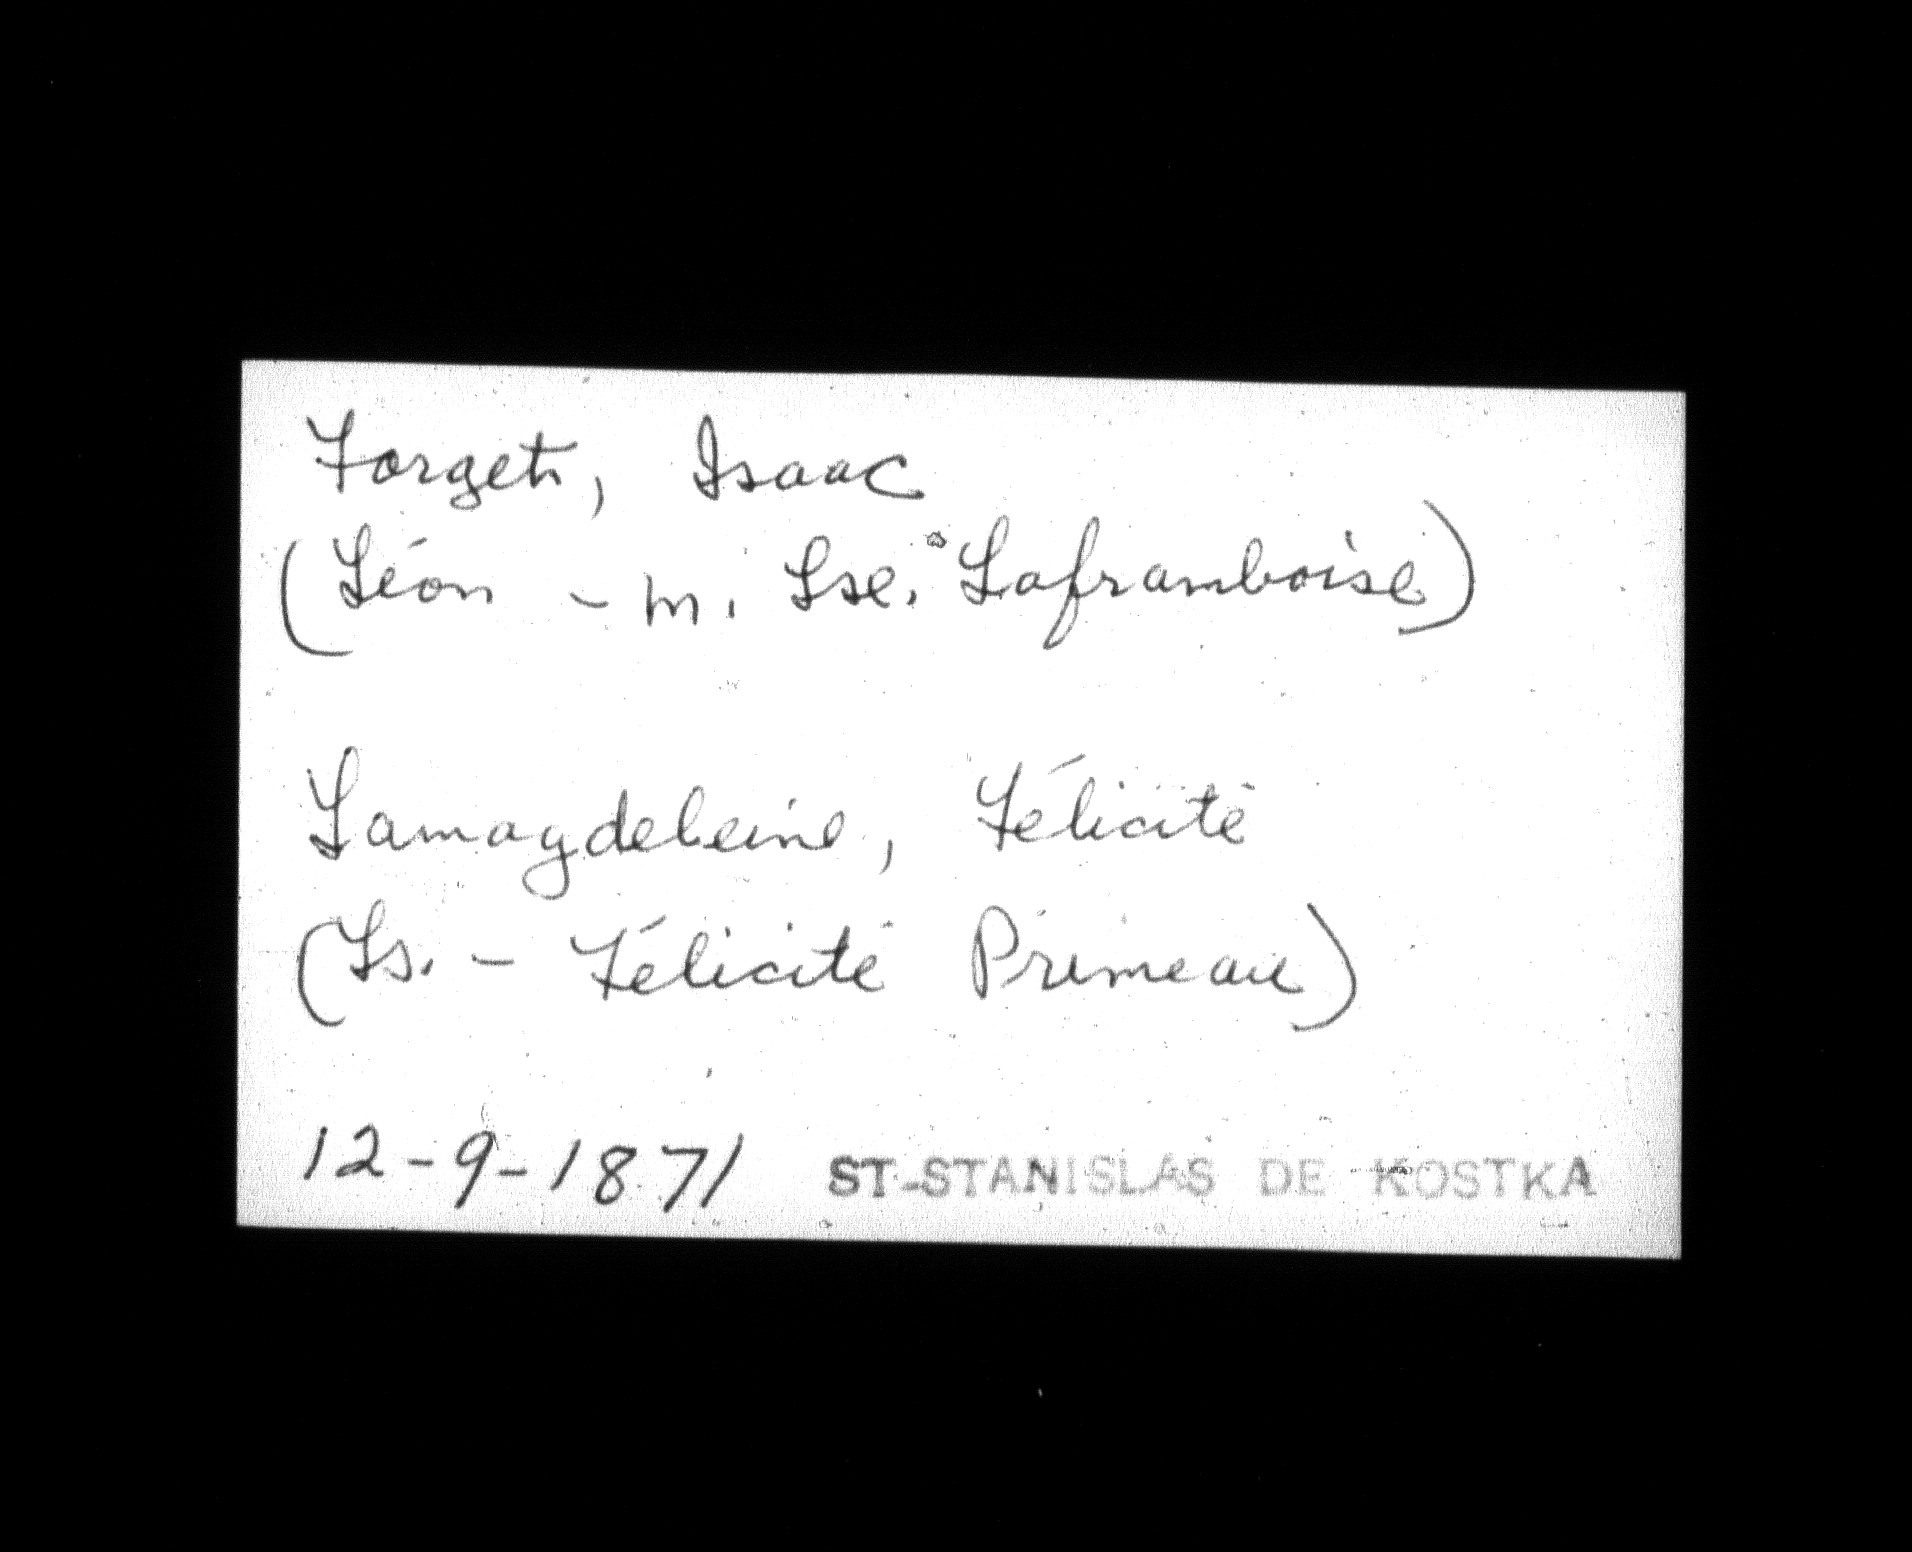 Forget, Isaac
(Léon - m. Lse. Laframboise)
Lamagdeleine, Félicité
(Ls. - Félicité Primeau)
12-9-1871 ST-STANISLAS DE KOSTKA